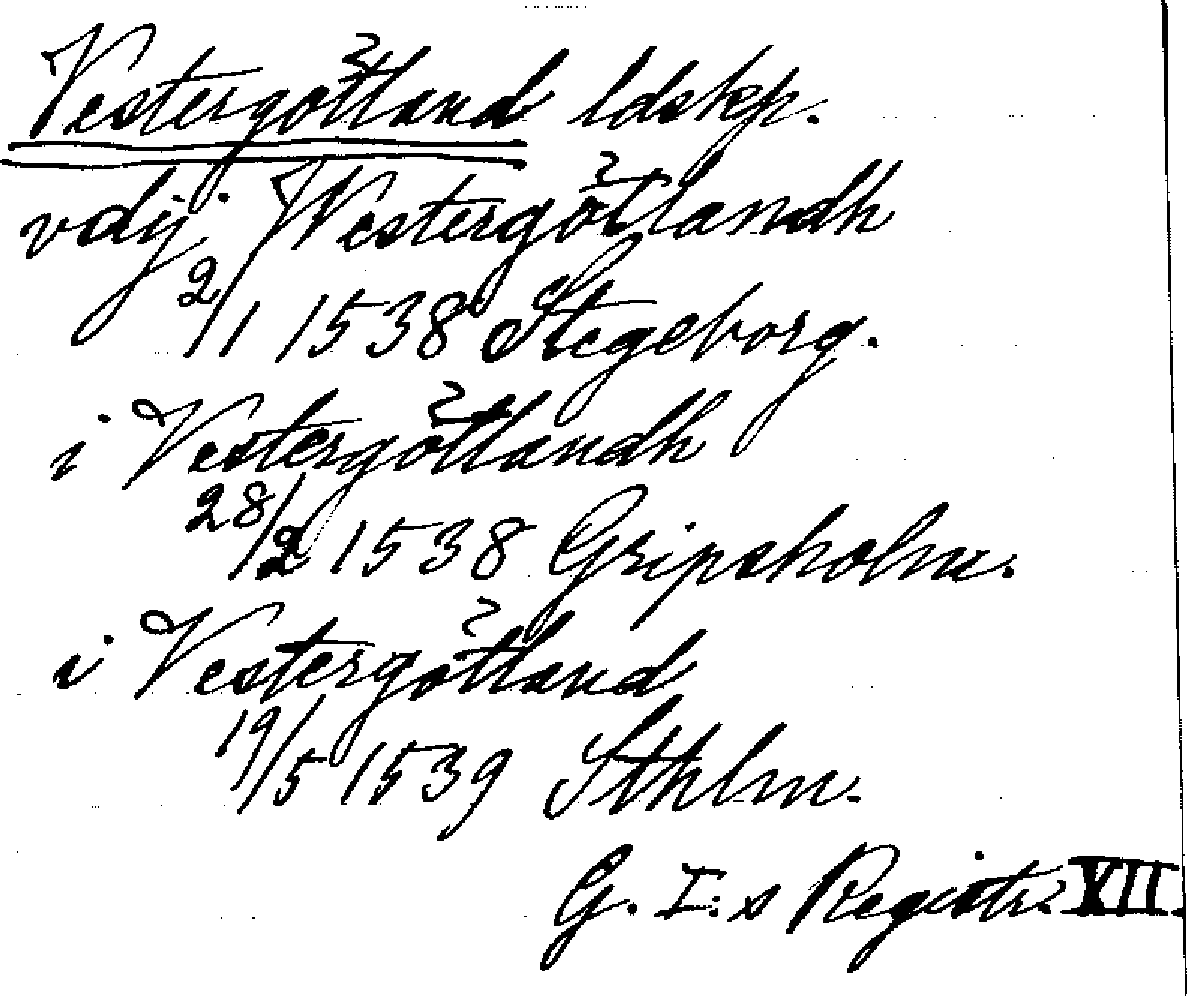 Vestergötland ldskp.
vdij Westergötlandh
2/1 1538 Stegeborg.
i Vestergötlandh
28/2 1538 Gripsholm.
i Vestergötland
19/5 1539 Sthlm.
G. I:s Registr. XII.